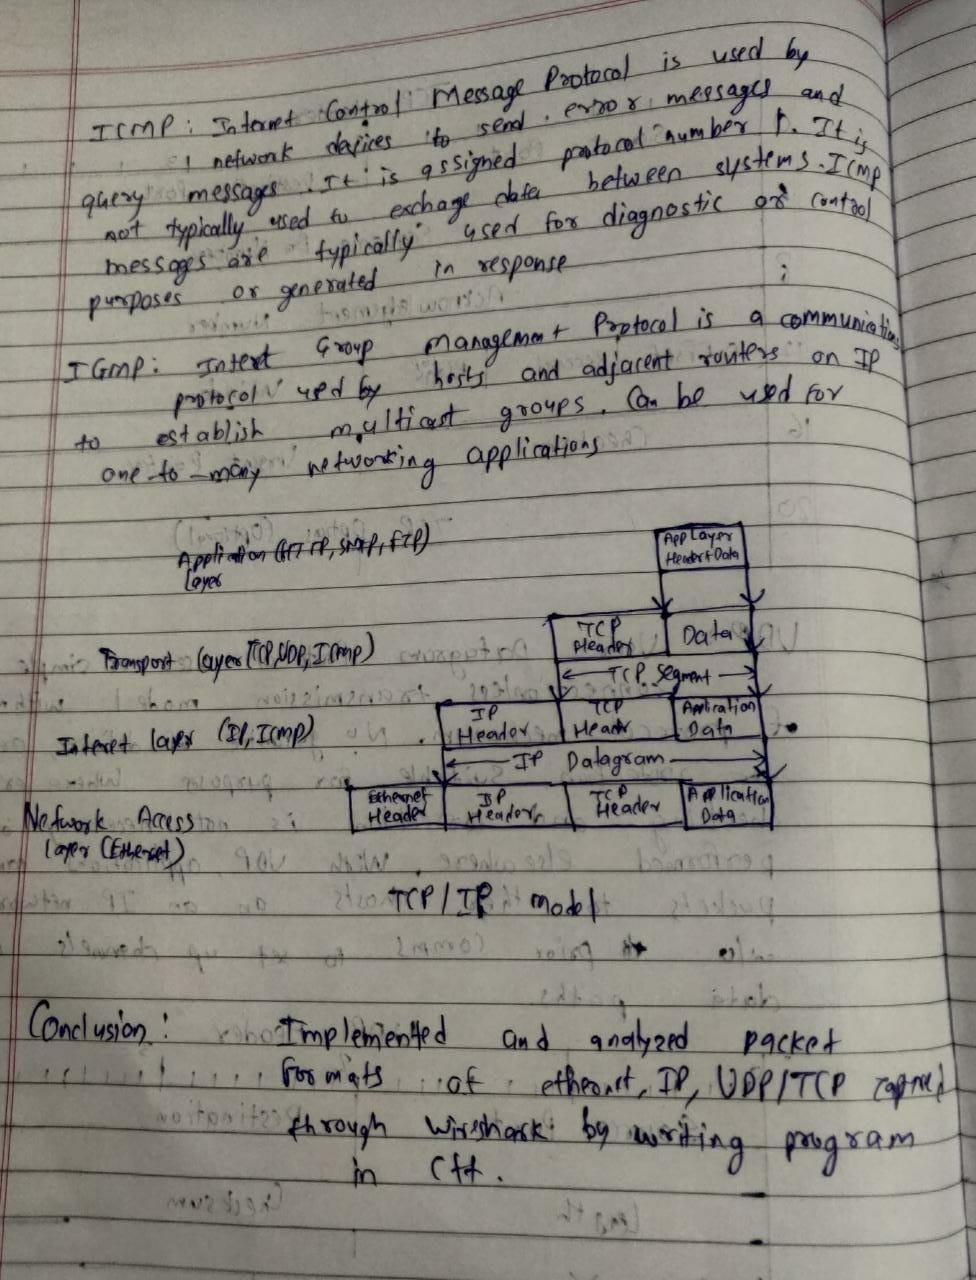 ICMP: Internet Control Message Protocol is used by
network devices to send error messages and
query messages. It is assigned protocol number 1. It is
not typically used to exchange data between systems. ICMP
messages are typically used for diagnostic or control
purposes or generated in response
IGMP: Group Management Protocol is a communication
protocol used by hosts and adjacent routers on IP
to establish multicast groups. Can be used for
one-to-many networking applications
Application (HTTP, SMTP, FTP)
Layer
App Layer
Header+Data
Transport layer (TCP, UDP, ICMP)
TCP
Header
Data
TCP Segment
Internet layer (IP, ICMP)
IP
Header
TCP
Header
Application
Data
IP Datagram
Network Access
layer (Ethernet)
Ethernet
Header
IP
Header
TCP
Header
Application
Data
TCP/IP model
Conclusion: Implemented and analyzed packet
formats of ethernet, IP, UDP/TCP
through wireshark by writing program
in C++.